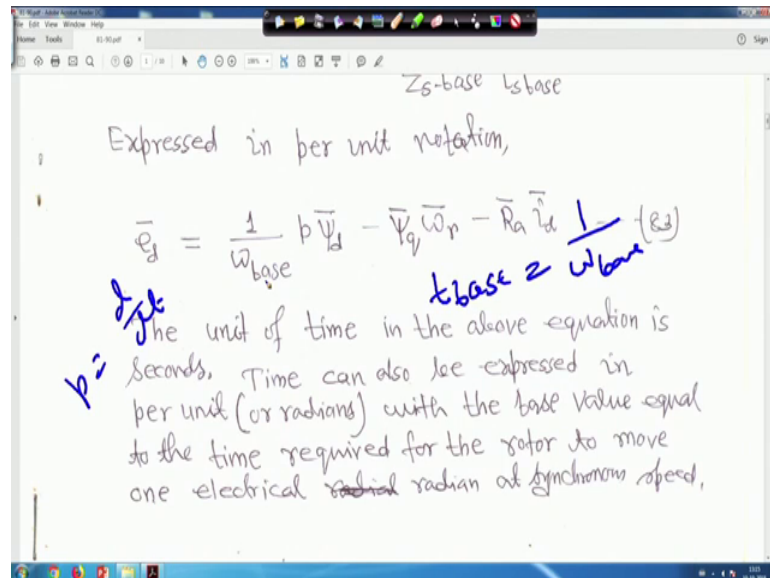 81-90.pdf - Adobe Acrobat Reader DC
File Edit View Window Help
Home Tools 81-90.pdf × Sign
Zs-base Lsbase
Expressed in per unit notation,
ē_d = 1/ω_base p ψ̄_d − ψ̄_q ω̄_r − R̄_a ī_d (83)
t base = 1/ω base
p = d/dt
The unit of time in the above equation is
seconds. Time can also be expressed in
per unit (or radians) with the base value equal
to the time required for the rotor to move
one electrical radian at synchronous speed.